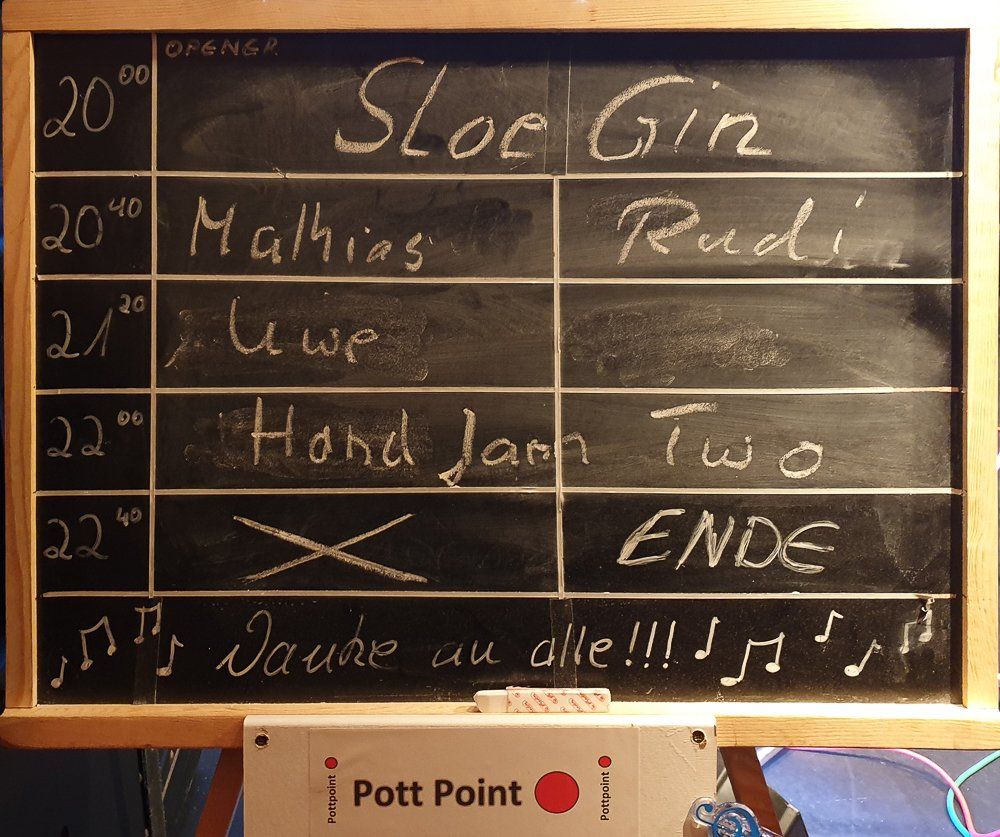 OPENER
20 00 Sloe Gin
20 40 Mathias Rudi
21 20 Uwe
22 00 Hand Jam Two
22 40 X ENDE
Danke an alle!!!
Pottpoint Pott Point Pottpoint